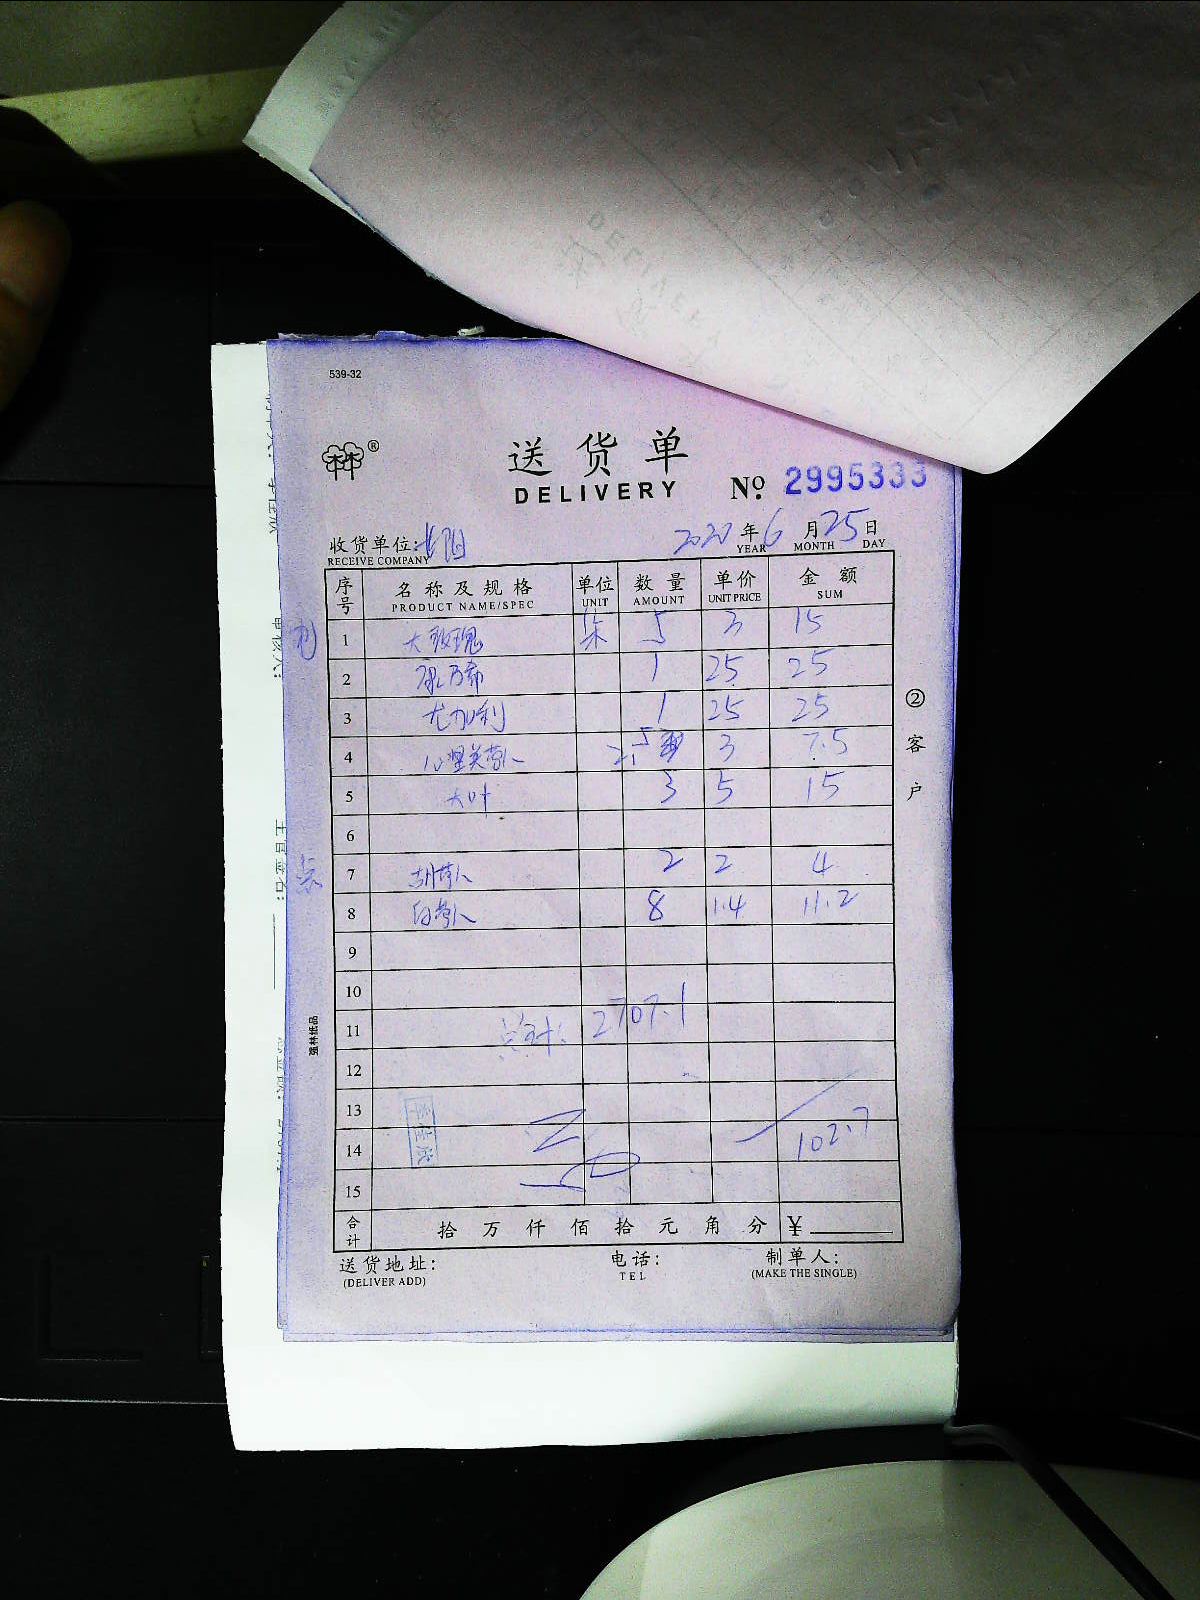 539-32
送货单
DELIVERY
№ 2995333
收货单位:
RECEIVE COMPANY
2020 年 6 月 25 日
YEAR MONTH DAY
序号 名称及规格 单位 数量 单价 金额
PRODUCT NAME/SPEC UNIT AMOUNT UNIT PRICE SUM
1 大玫瑰 5 3 15
2 1 25 25
3 尤加利 1 25 25
4 2.5 3 7.5
5 大叶 3 5 15
6
7 2 2 4
8 8 1.4 11.2
9
10
11 总计: 2707.1
12
13
14 102.7
15
李佳欣
合计 拾 万 仟 佰 拾 元 角 分 ¥
送货地址: 电话: 制单人:
(DELIVER ADD) TEL (MAKE THE SINGLE)
②客户
强林纸品
DELIVERY